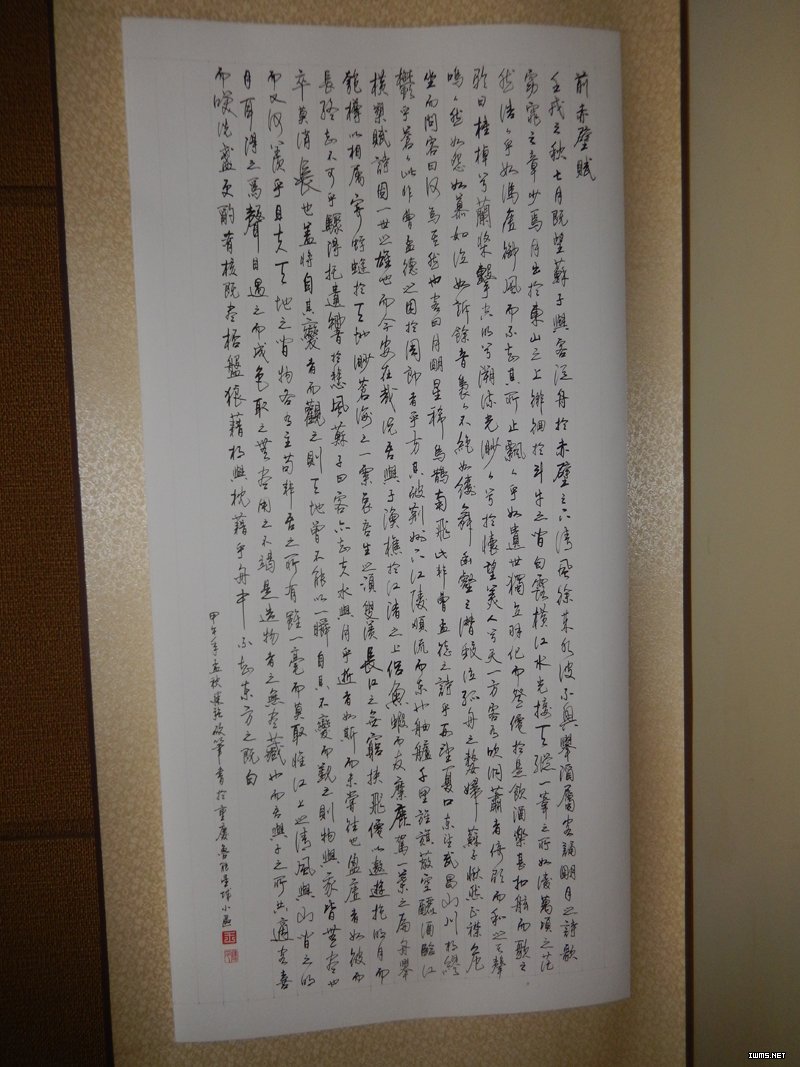 前赤壁賦
壬戌之秋七月既望蘇子與客泛舟於赤壁之下清風徐來水波不興舉酒屬客誦明月之詩歌
窈窕之章少焉月出於東山之上徘徊於斗牛之間白露橫江水光接天縱一葦之所如凌萬頃之茫
然浩浩乎如馮虛御風而不知其所止飄飄乎如遺世獨立羽化而登僊於是飲酒樂甚扣舷而歌之
歌曰桂棹兮蘭槳擊空明兮溯流光渺渺兮於懷望美人兮天一方客有吹洞簫者倚歌而和之其聲
嗚嗚然如怨如慕如泣如訴餘音裊裊不絕如縷舞幽壑之潛蛟泣孤舟之嫠婦蘇子愀然正襟危
坐而問客曰何為其然也客曰月明星稀烏鵲南飛此非曹孟德之詩乎西望夏口東望武昌山川相繆
鬱乎蒼蒼此非曹孟德之困於周郎者乎方其破荊州下江陵順流而東也舳艫千里旌旗蔽空釃酒臨江
橫槊賦詩固一世之雄也而今安在哉況吾與子漁樵於江渚之上侶魚蝦而友麋鹿駕一葉之扁舟舉
匏樽以相屬寄蜉蝣於天地渺蒼海之一粟哀吾生之須臾羨長江之無窮挾飛僊以遨遊抱明月而
長終知不可乎驟得托遺響於悲風蘇子曰客亦知夫水與月乎逝者如斯而未嘗往也盈虛者如彼而
卒莫消長也蓋將自其變者而觀之則天地曾不能以一瞬自其不變而觀之則物與我皆無盡也
而又何羨乎且夫天地之間物各有主苟非吾之所有雖一毫而莫取惟江上之清風與山間之明
月耳得之為聲目遇之而成色取之無盡用之不竭是造物者之無盡藏也而吾與子之所共適客喜
而笑洗盞更酌肴核既盡杯盤狼藉相與枕藉乎舟中不知東方之既白
甲午年孟秋 筆書於重慶 小區
IWMS.NET